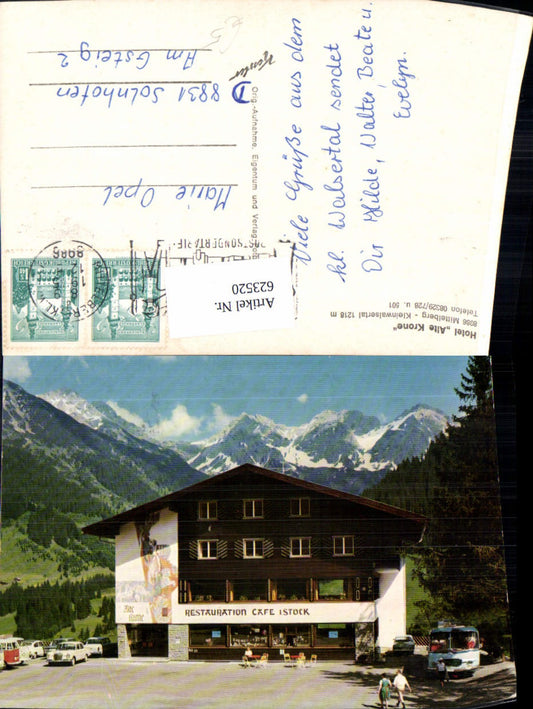 Viele Grüße aus dem
kl. Walsertal sendet
Dir Hilde, Walter, Beate u.
Evelyn.
Marie Opel
8831 Solnhofen
Am Gsteig 2
D
Orig.-Aufnahme, Eigentum und Verlag:
POSTSONDERTARIF
8986
Artikel Nr.
623520
Hotel „Alte Krone"
8986 Mittelberg - Kleinwalsertal 1218 m
Telefon 08329/728 u. 501
RESTAURATION CAFE 1STOCK